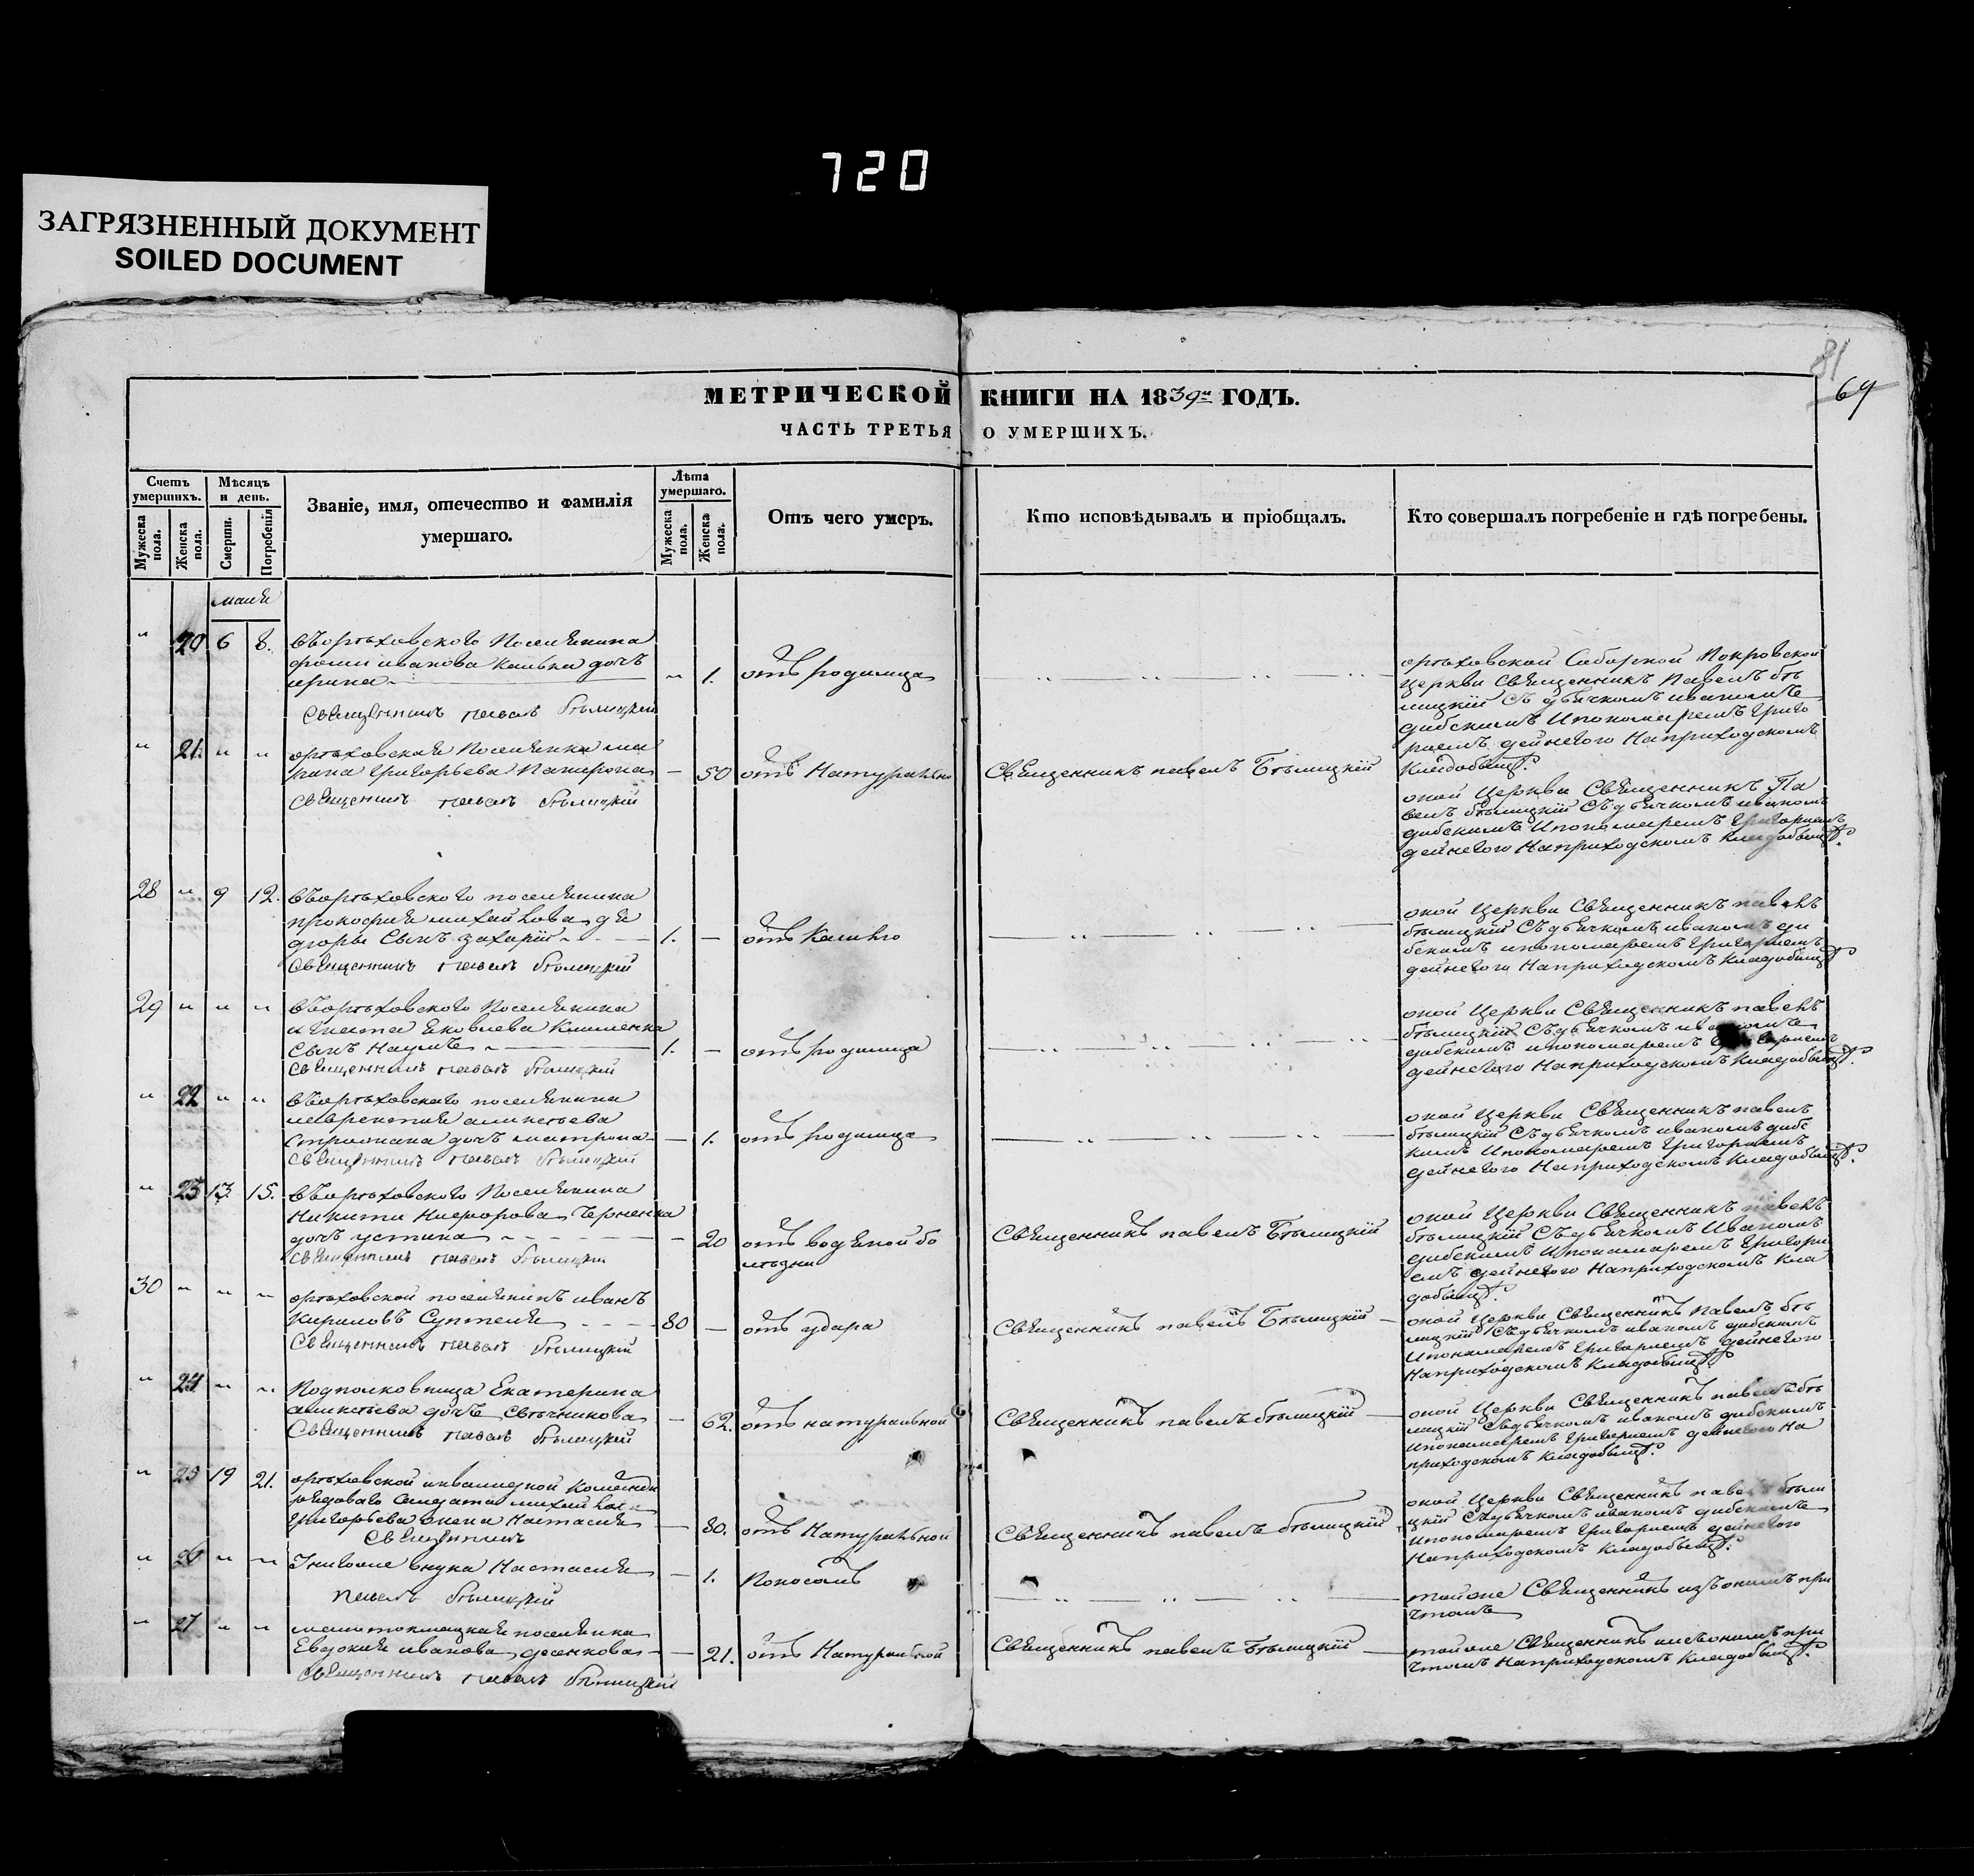 720
ЗАГРЯЗНЕННЫЙ ДОКУМЕНТ
SOILED DOCUMENT
81
69
МЕТРИЧЕСКОЙ КНИГИ НА 1839й ГОДЪ.
ЧАСТЬ ТРЕТЬЯ О УМЕРШИХЪ.
Счетъ умершихъ.
Мужеска пола.
Женска пола.
Мѣсяцъ и день.
Смерти.
Погребенія
Званіе, имя, отечество и фамилія умершаго.
Лѣта умершаго.
Мужеска пола.
Женска пола.
Отъ чего умеръ.
Кто исповѣдывалъ и пріобщалъ.
Кто совершалъ погребеніе и гдѣ погребены.
маія
" 20 6 8.
ѣорѣховского Поселянина
иванова дочъ
ирина
Священникъ Павелъ Бѣлицкій
" 1. отъ родимца
орѣховской Соборной Покровской
церкви Священникъ Павелъ Бѣ
лицкій Съ дьячкомъ иваномъ
дибскимъ Ипономаремъ Григо
риемъ дейнегого Наприходскомъ
Кладобыщѣ.
" 21. " "
орѣховская Поселянка ма
рина Григорьева
Священникъ Павелъ Бѣлицкій
— 50 отъ Натуральной
Священникъ павелъ Бѣлицкій
оной Церкви Священникъ Па
велъ бѣлицкій Съдьячкомъ иваномъ
дибскимъ Ипономаремъ Григориемъ
дейнегого Наприходскомъ Кладобыщѣ.
28 " 9 12.
ѣорѣховского поселянина
прокофия михайлова дѣ
дюры Сынъ захарій
Священникъ Павелъ Бѣлицкій
1. — отъ Кашлю
оной Церкви Священникъ павелъ
бѣлицкій Съдьячкомъ иваномъ ди
бскимъ ипономаремъ Григориемъ
дейнегого Наприходскомъ Кладобыщѣ.
29 " " "
ѣорѣховского Поселянина
игната яковлева Клименка
Сынъ Наумъ
Священникъ Павелъ Бѣлицкій
1. — отъ родимца
оной Церкви Священникъ павелъ
бѣлицкій Съдьячкомъ иваномъ
дибскимъ ипономаремъ
дейнегого Наприходскомъ Кладобыщѣ.
" 22 " "
ѣорѣховского поселянина
лаврентия аликсѣева
дочъ матрона
Священникъ Павелъ Бѣлицкій
— 1. отъ родимца
оной Церкви Священникъ павелъ
бѣлицкій Съдьячкомъ иваномъ дибс
кимъ Ипономаремъ Григориемъ
дейнегого Наприходскомъ Кладобыщѣ.
" 23 13 15.
ѣорѣховского Поселянина
Никиты Никифорова Черненка
дочъ устина
Священникъ Павелъ Бѣлицкій
— 20 отъ водяной бо
лѣзни
Священникъ павелъ Бѣлицкій
оной Церкви Священникъ павелъ
бѣлицкій Съдьячкомъ Иваномъ
дибскимъ Ипономаремъ Григори
емъ дейнегого Наприходскомъ Кла
добыщѣ.
30 " " "
орѣховской поселянинъ иванъ
Кириловъ Суптеля
Священникъ Павелъ Бѣлицкій
80 — отъ удара
Священникъ павелъ Бѣлицкій
оной Церкви Священникъ Павелъ бѣ
лицкій Съдьячкомъ иваномъ дибскимъ
Ипономаремъ Григориемъ дейнегого
Наприходскомъ Кладобыщѣ.
" 24 " "
Подполковница Екатерина
аликсѣева дочъ Свѣчникова
Священникъ Павелъ Бѣлицкій
— 62. отъ натуральной
Священникъ павелъ бѣлицкій
оной Церкви Священникъ павелъ бѣ
лицкій Съдьячкомъ иваномъ дибскимъ
Ипономаремъ Григориемъ дейнегого На
приходскомъ Кладобыщѣ.
" 25 19 21.
орѣховской инвалидной Команди
рядоваго Салдата михайла
Григорьева жена Настасия
Священникъ
— 80. отъ Натуральной
Священникъ павелъ бѣлицкій
оной Церкви Священникъ павелъ бѣли
цкій Съдьячкомъ иваномъ дибскимъ
Ипономаремъ Григориемъ дейнегого
Наприходскомъ Кладобыщѣ.
" 26 " "
внука Настасия
Павелъ Бѣлицкій
— 1. Поносомъ
тойже Священникъ изъонимъ при
чтомъ
" 27 " "
малотокмацкая поселянка
Евдокия иванова
Священникъ Павелъ Бѣлицкій
— 21. отъ Натуральной
Священникъ павелъ Бѣлицкій
тойже Священникъ изъонимъ при
чтомъ Наприходскомъ Кладобыщѣ.